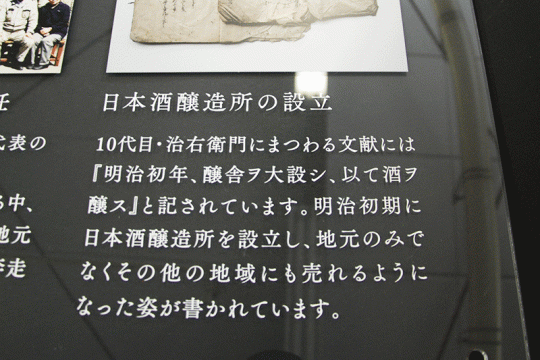 日本酒醸造所の設立
10代目・治右衛門にまつわる文献には
『明治初年、醸舎ヲ大設シ、以て酒ヲ
醸ス』と記されています。明治初期に
日本酒醸造所を設立し、地元のみで
なくその他の地域にも売れるように
なった姿が書かれています。
任
代表の
る中、
地元
奔走